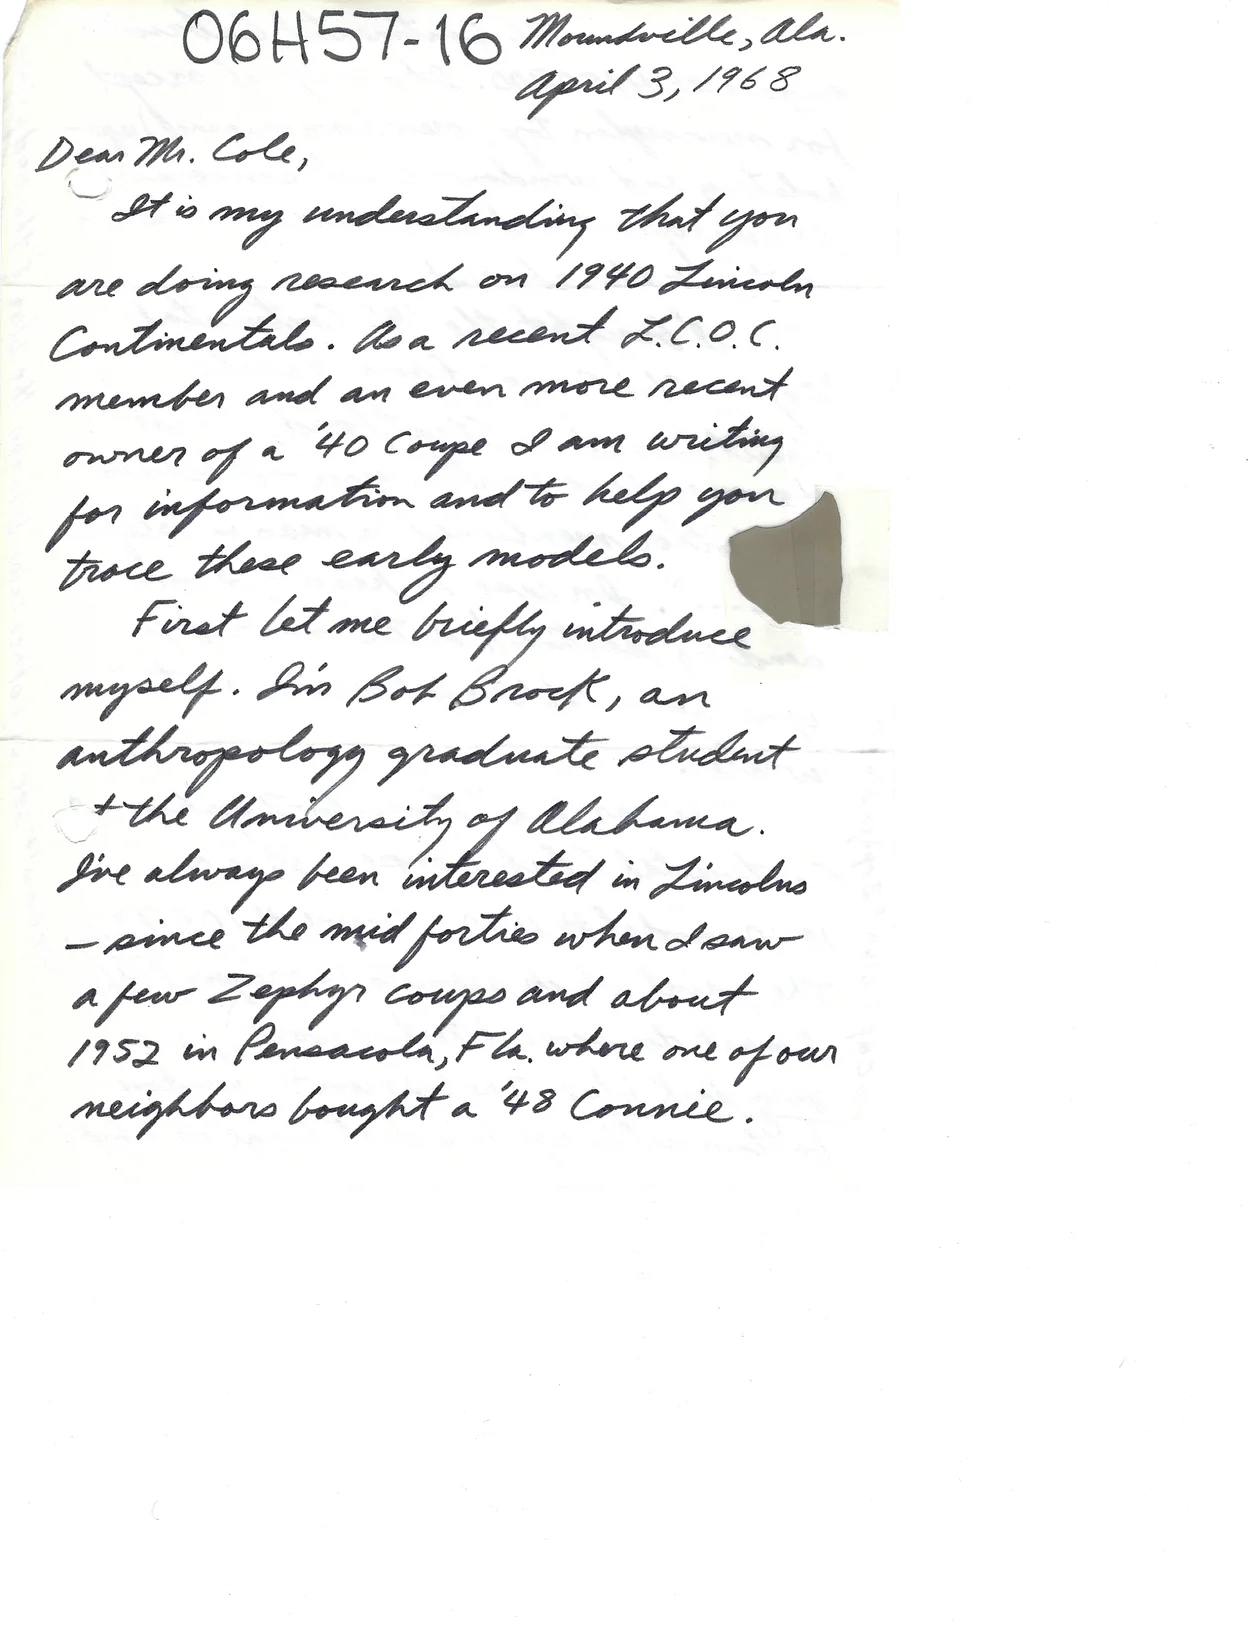 06H57-16 Moundville, Ala.
April 3, 1968
Dear Mr. Cole,
It is my understanding that you
are doing research on 1940 Lincoln
Continentals. As a recent L.C.O.C.
member and an even more recent
owner of a '40 Coupe I am writing
for information and to help you
trace these early models.
First let me briefly introduce
myself. I'm Bob Brock, an
anthropology graduate student
t the University of Alabama.
I've always been interested in Lincolns
– since the mid forties when I saw
a few Zephyr coups and about
1952 in Pensacola, Fla. where one of our
neighbors bought a '48 Connie.